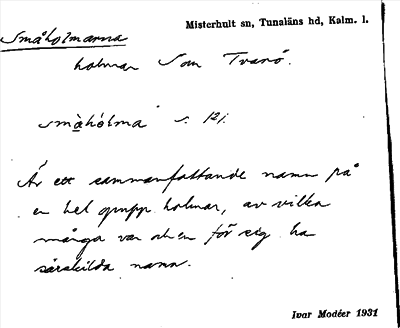 Misterhult sn, Tunaläns hd, Kalm. l.
Småholmarna
holmar Som Tvarö.
småhólma s. 121.
Är ett sammanfattande namn på
en hel grupp holmar, av vilka
många var och en för sig ha
särskilda namn.
Ivar Modéer 1931